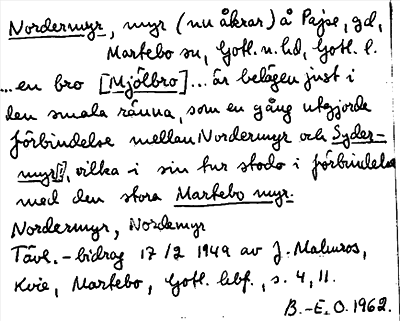 Nordermyr, myr (nu åkrar) å Pajse, gd,
Martebo sn, Gotl. n. hd, Gotl. l.
...en bro [Mjölbro]... är belägen just i
den smala ränna, som en gång utgjorde
förbindelse mellan Nordermyr och Syder-
myr[!], vilka i sin tur stodo i förbindelse
med den stora Martebo myr.
Nordermyr, Nordemyr
Tävl.-bidrag 17/2 1949 av J. Malmros,
Kvie, Martebo, Gotl. hbf., s. 4, 11.
B.-E. O. 1962.